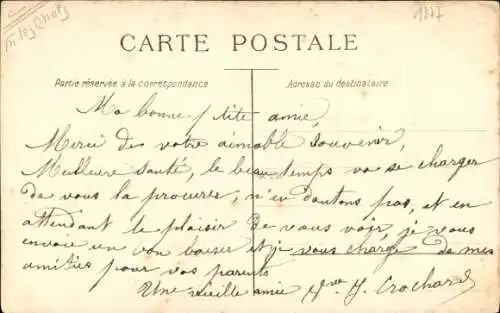 n-les-Chats
1327
CARTE POSTALE
Partie réservée à la correspondance
Adresse du destinataire
Ma bonne p'tite amie,
Merci de votre aimable souvenir,
Meilleure santé, le beau temps va se charger
de vous la procurer, n'en doutons pas, et en
attendant le plaisir de vous voir, je vous
envoie un bon baiser et je vous charge de mes
amitiés pour vos parents
Une vieille amie J. Crochard